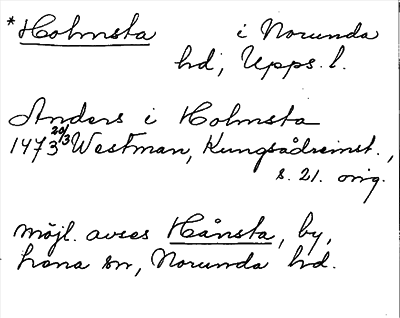 * Holmsta i Norunda
hd, Upps. l.
Anders i Holmsta
1473 20/3 Westman, Kungsådreinst.,
s. 21. orig.
Möjl. avses Hånsta, by,
hona sn, Norunda hd.